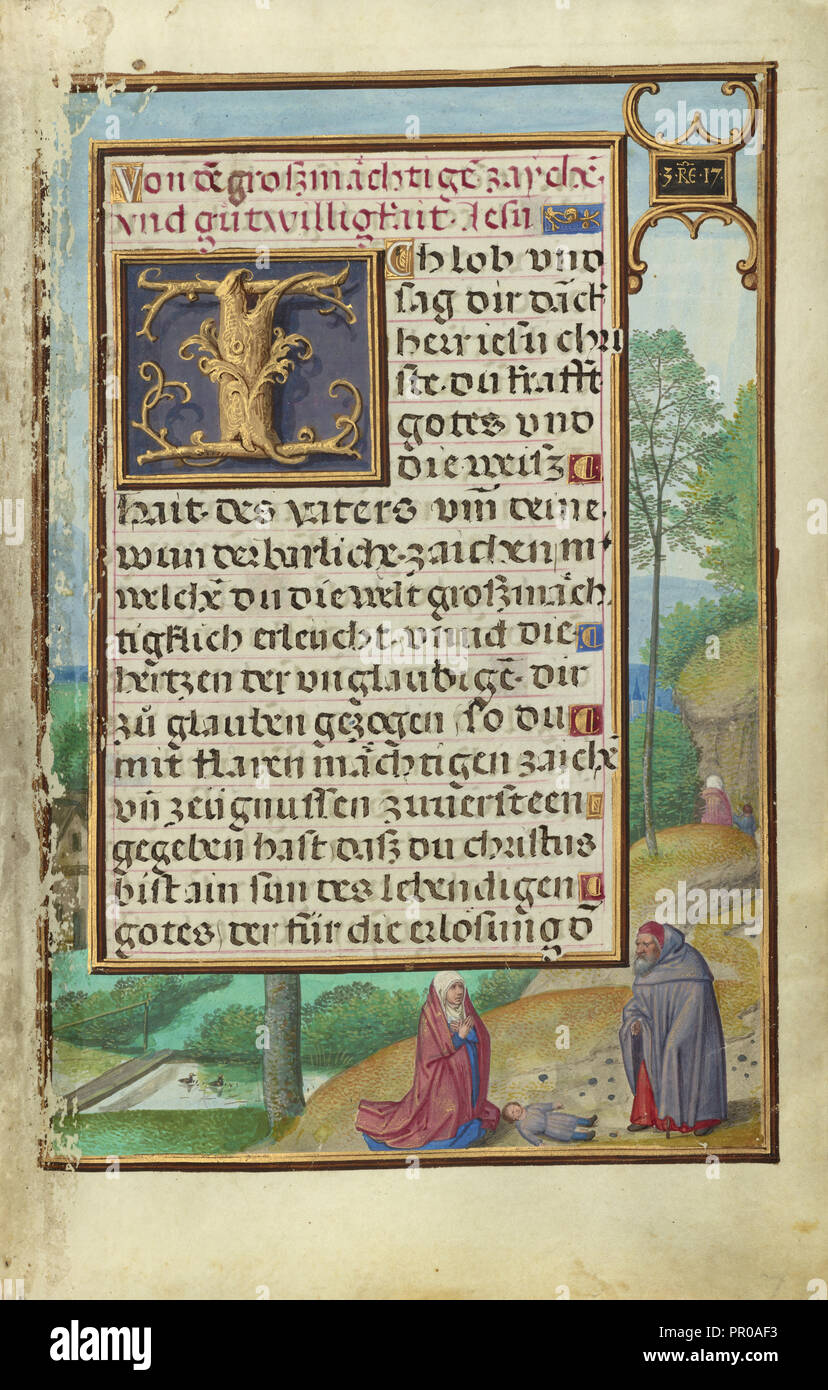 3·RE·17
Von dē großmächtigē zaychē·
vnd gutwilligkait· Jesu
Ich lob vnd
sag dir danck
herr iesu chri
ste· du krafft
gotes vnd
die weisz
hait· des vaters vm̄ deine·
wunderbarliche· zaichen mᵗ
welchē du die welt großmäch
tigklich erleucht· vnnd die·
hertzen der vnglaubigē· dir
zů glauben gezogen, so du
mit klaren mächtigen zaichē
vn̄ zeugnussen zuuersteen
gegeben hast daß du christus
bist ain sun des lebendigen
gotes, der für die erlösung d̄
alamy
a
alamy
alamy stock photo
PR0AF3
www.alamy.com